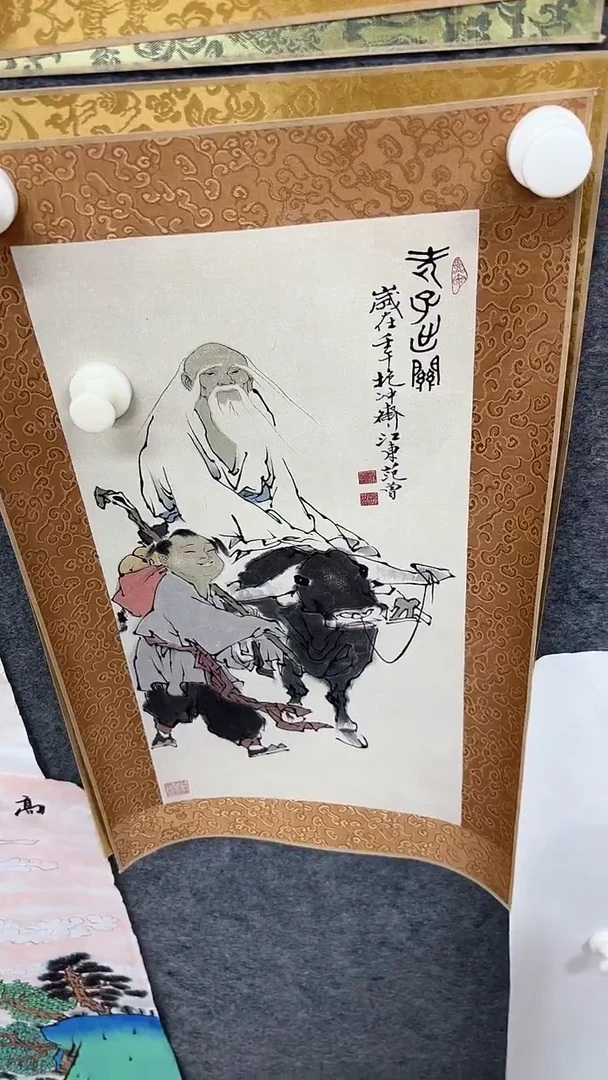 老子出關
歲在壬午抱沖齋江東范曾
高